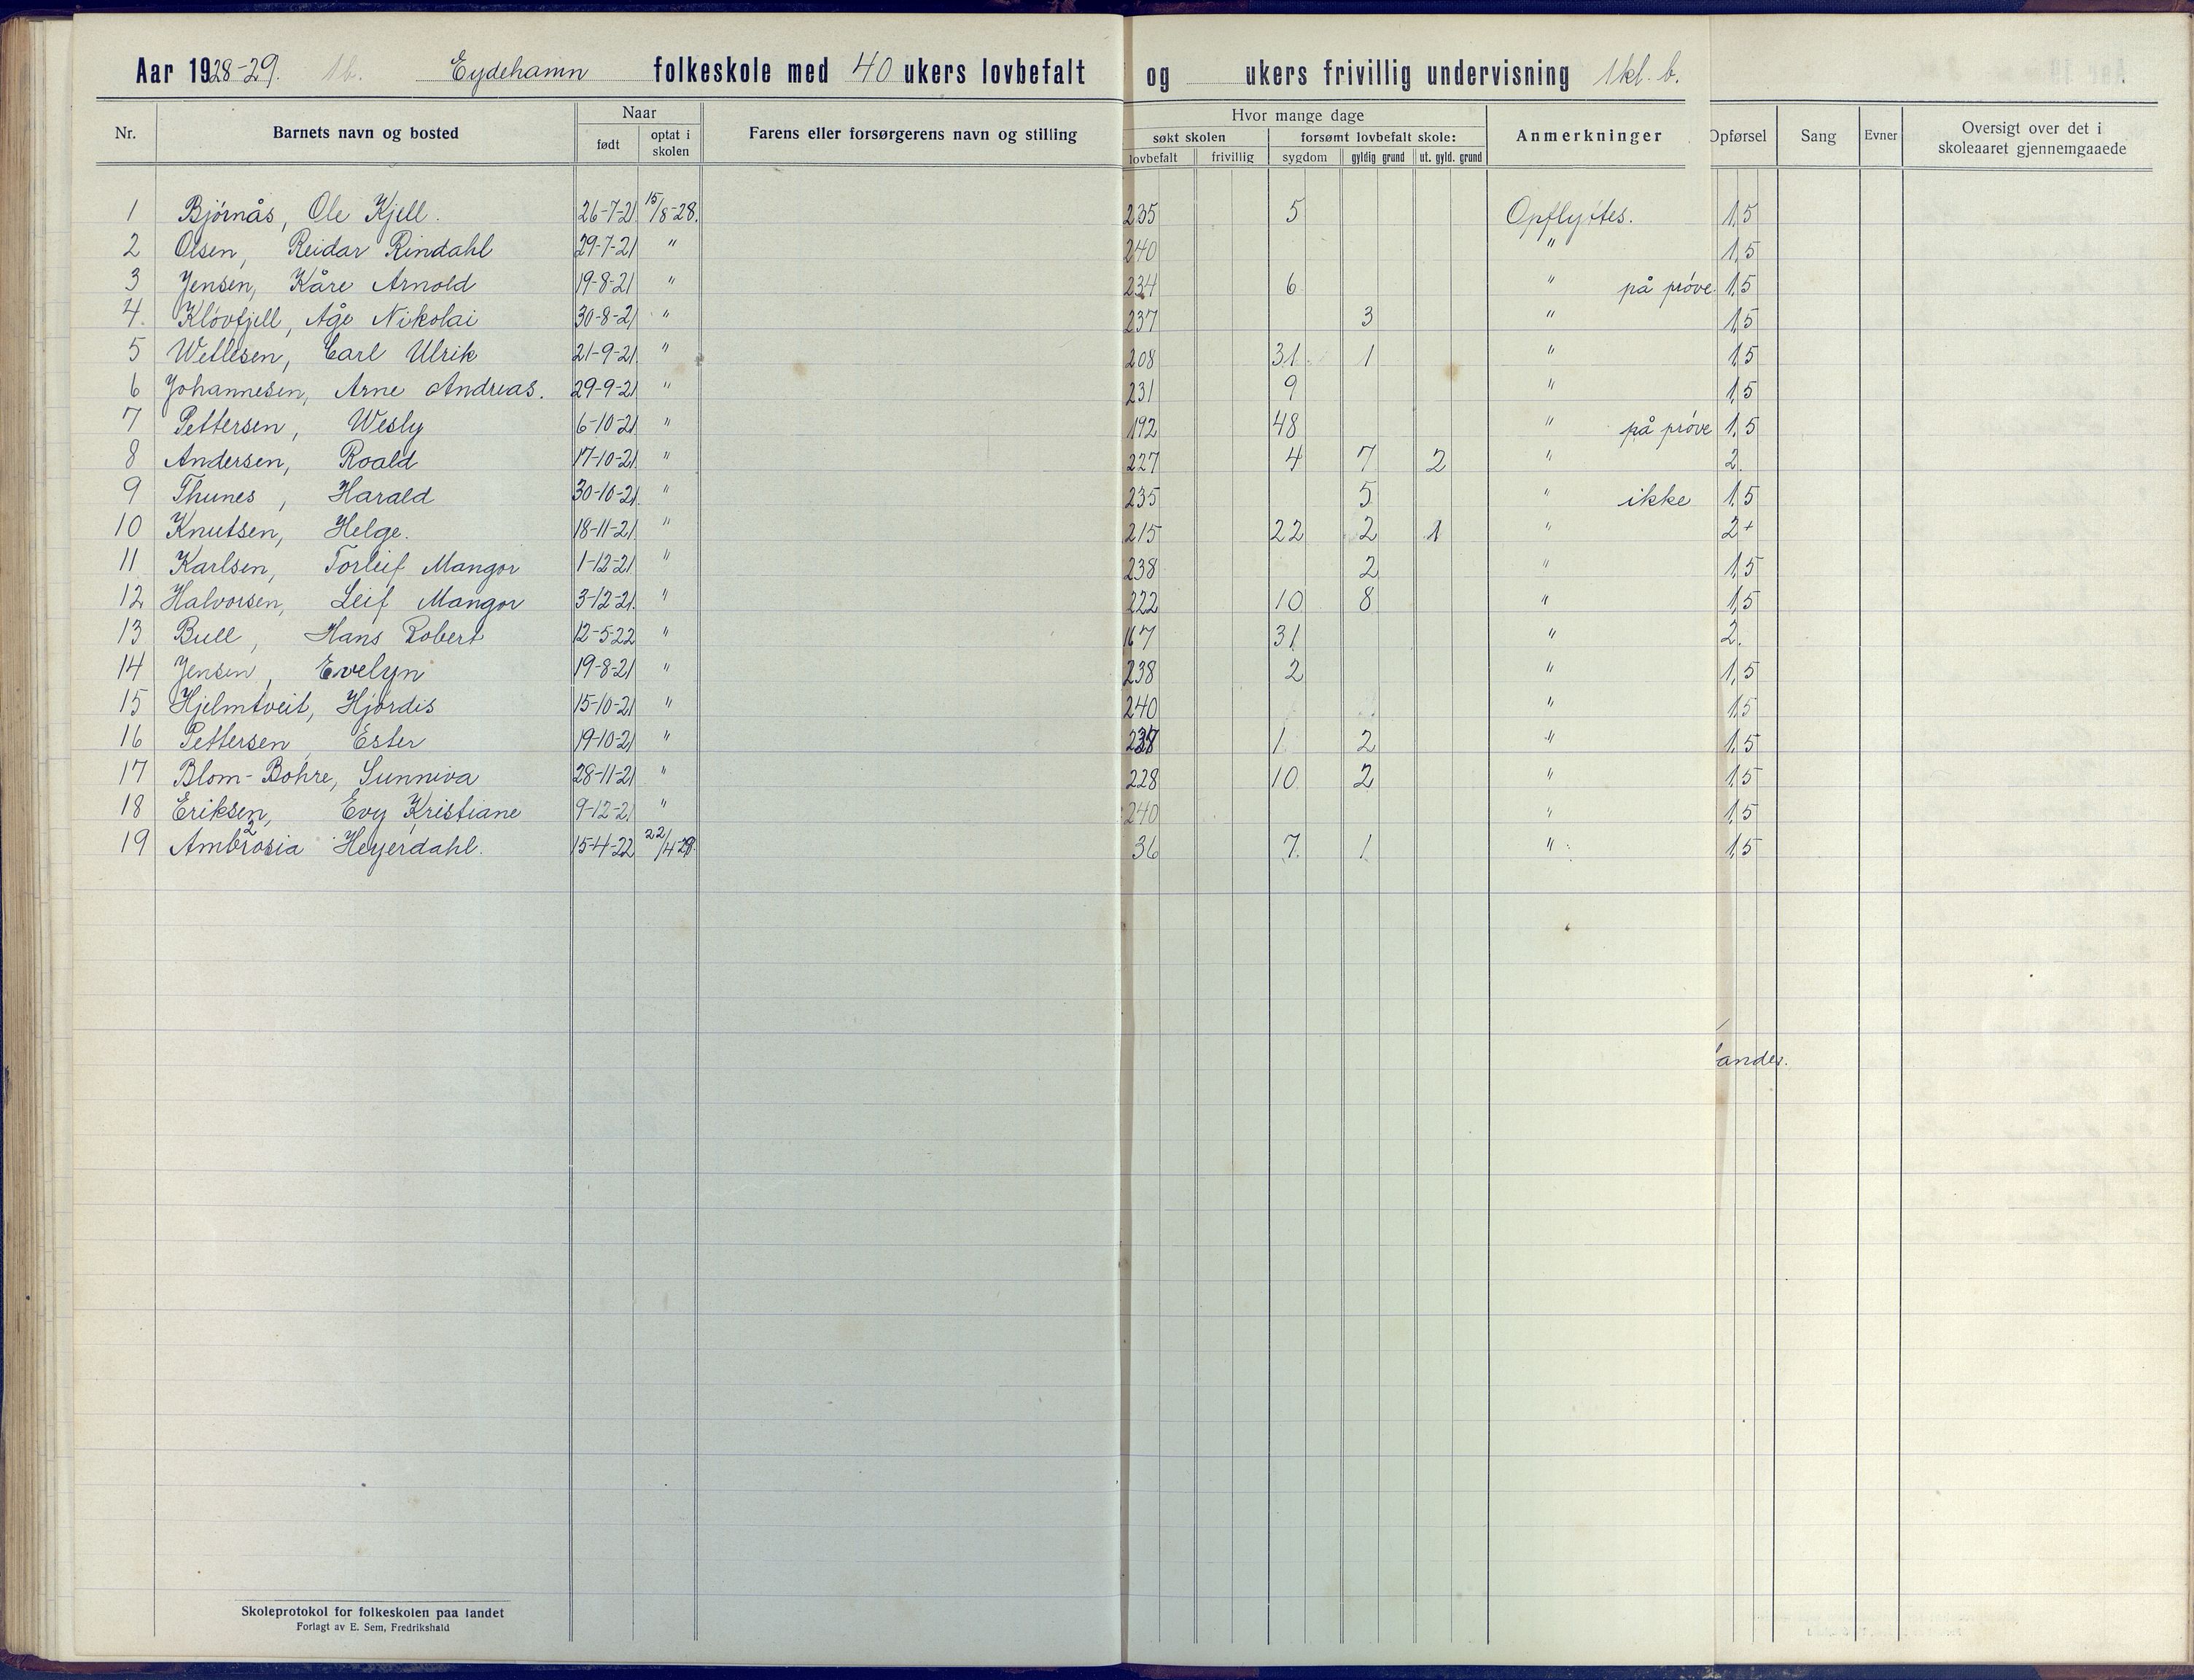 Aar 1928-29. 1b. Eydehamn folkeskole med 40 ukers lovbefalt og ukers frivillig undervisning 1kl. b.
Nr. Barnets navn og bosted Naar født optat i skolen Farens eller forsørgerens navn og stilling Hvor mange dage søkt skolen lovbefalt frivillig forsømt lovbefalt skole: sygdom gyldig grund ut. gyld. grund Anmerkninger Opførsel Sang Evner Oversigt over det i skoleaaret gjennemgaaede
1 Bjørnås, Ole Kjell. 26-7-21 15/8-28. 235 5 Opflyttes. 1,5
2 Olsen, Reidar Rindahl 29-7-21 " 240 " 1,5
3 Jensen, Kåre Arnold 19-8-21 " 234 6 " på prøve. 1,5
4. Kløvfjell, Åge Nikolai 30-8-21 " 237 3 " 1,5
5 Wetlesen, Carl Ulrik 21-9-21 " 208 31 1 " 1,5
6 Johannesen, Arne Andreas. 29-9-21 " 231 9 " 1,5
7 Pettersen, Wesly 6-10-21 " 192 48 " på prøve 1,5
8 Andersen, Roald 17-10-21 " 227 4 7 2 " 2.
9 Thunes, Harald 30-10-21 " 235 5 " ikke 1,5
10 Knutsen, Helge. 18-11-21 " 215 22 2 1 " 2+
11 Karlsen, Torleif Mangor 1-12-21 " 238 2 " 1,5
12 Halvorsen, Leif Mangor 3-12-21. " 222 10 8 " 1,5
13 Bull, Hans Robert 12-5-22 " 167 31 " 2.
14 Jensen, Evelyn 19-8-21 " 238 2 " 1,5
15 Hjelmtveit, Hjørdis 15-10-21 " 240 " 1,5
16 Pettersen, Ester 19-10-21 " 237 1 2 " 1,5
17 Blom-Bohre, Sunniva 28-11-21 " 228 10 2 " 1,5
18 Eriksen, Evy Kristiane 9-12-21 " 240 " 1,5
19 Ambrosia Heyerdahl. 15-4-22 22/4-29. 36 7 1 " 1,5
Skoleprotokol for folkeskolen paa landet
Forlagt av E. Sem, Fredrikshald